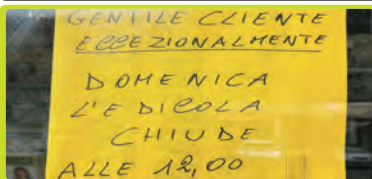 GENTILE CLIENTE
ECCEZIONALMENTE
DOMENICA
L'EDICOLA
CHIUDE
ALLE 12,00